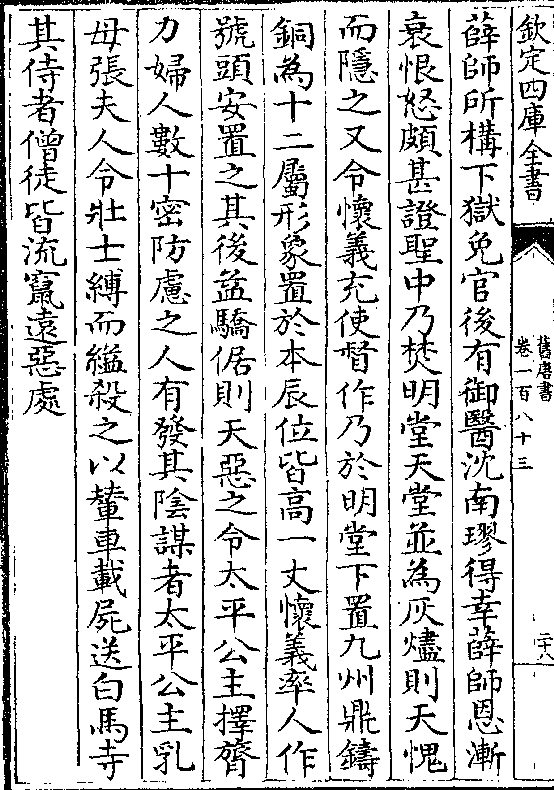 欽定四庫全書
舊唐書
卷一百八十三
二十八
薛師所構下獄免官後有御醫沈南璆得幸薛師恩漸
衰恨怒頗甚證聖中乃焚明堂天堂並為灰燼則天愧
而隱之又令懷義充使督作乃於明堂下置九州鼎鑄
銅為十二屬形象置於本辰位皆高一丈懷義率人作
號頭安置之其後益驕倨則天惡之令太平公主擇膂
力婦人數十密防慮之人有發其陰謀者太平公主乳
母張夫人令壯士縛而縊殺之以輦車載屍送白馬寺
其侍者僧徒皆流竄遠惡處